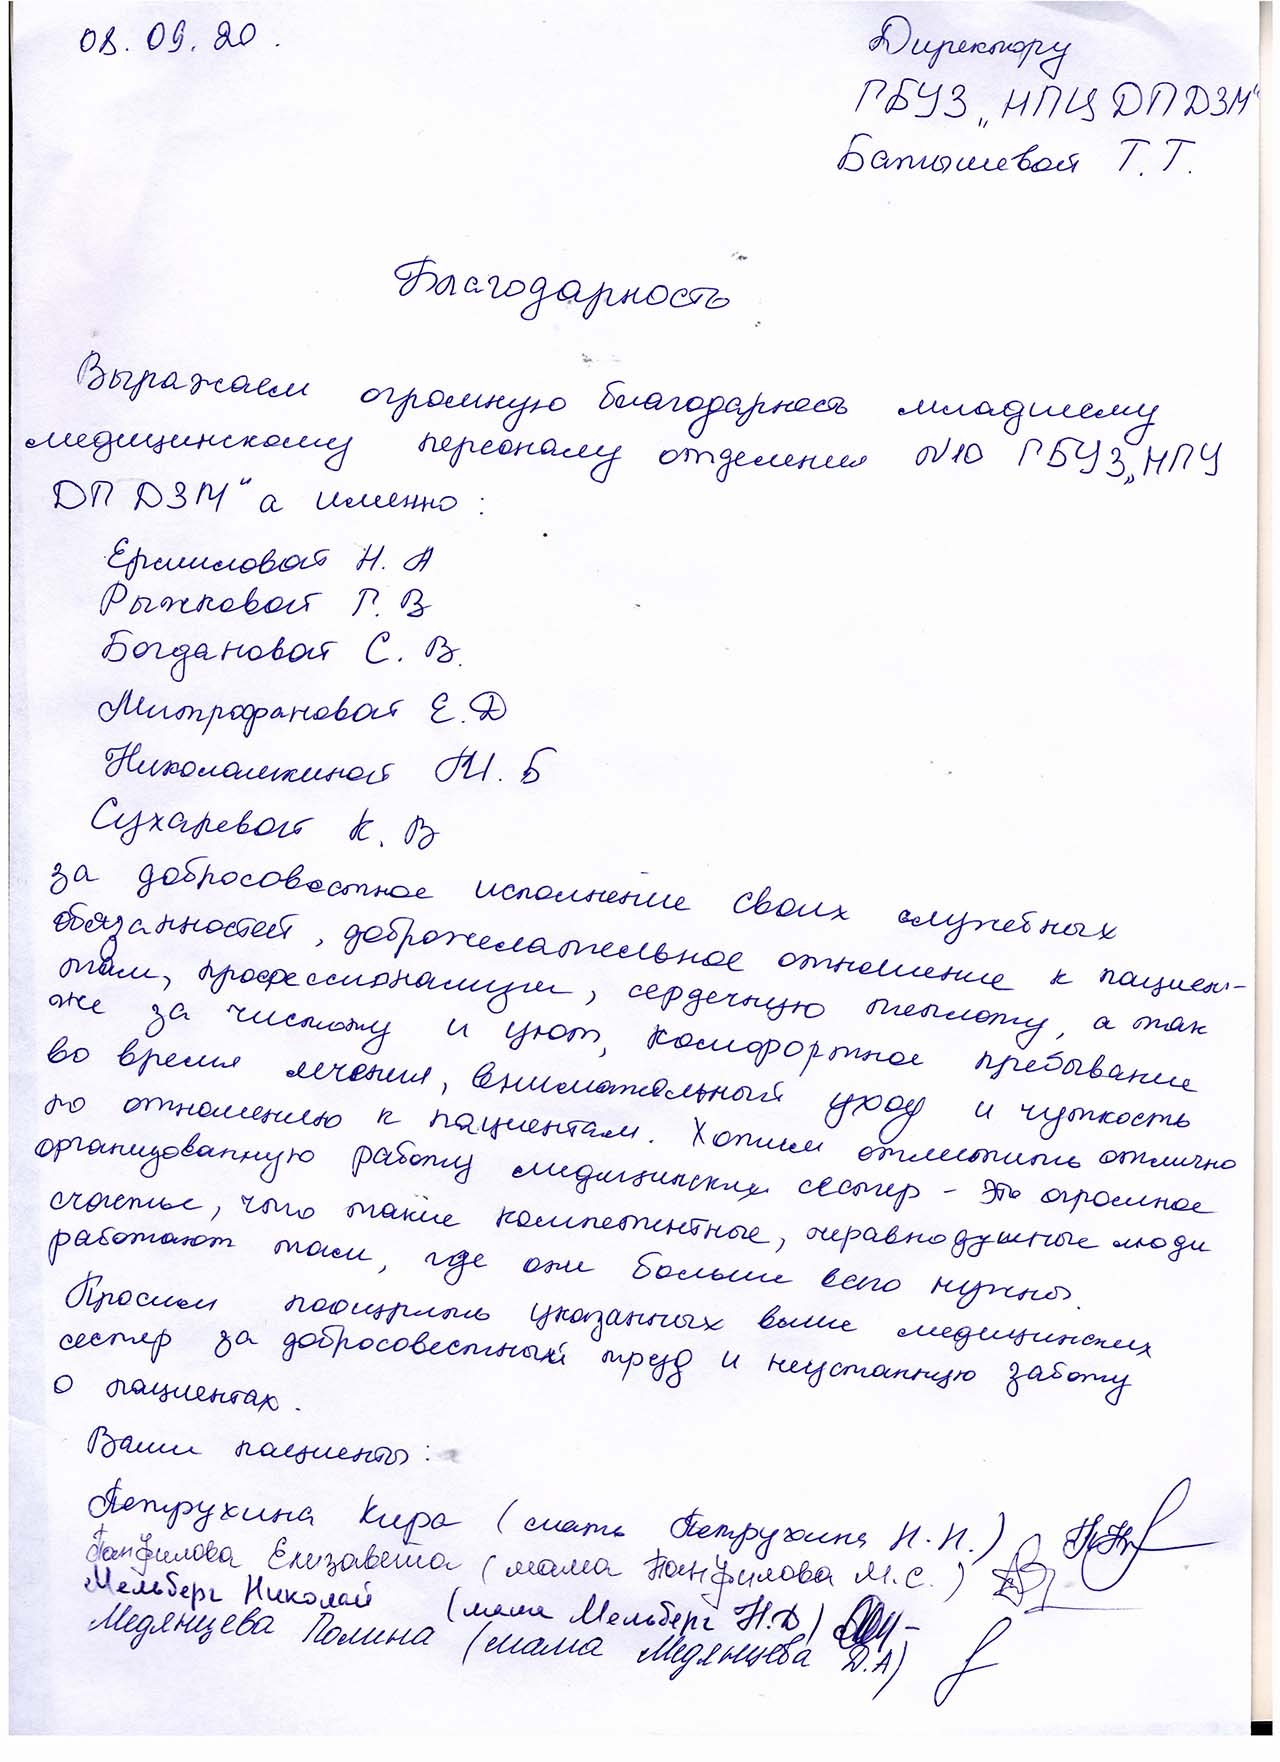 08.09.20.
Директору
ГБУЗ „НПЦ ДП ДЗМ“
Батышевой Т.Т.
Благодарность
Выражаем огромную благодарность младшему
медицинскому персоналу отделения №10 ГБУЗ „НПЦ
ДП ДЗМ“ а именно:
Ермиловой Н. А
Рыжковой Г. В
Богдановой С. В.
Митрофановой Е. Д
Николашкиной Б
Сухаревой К. В
за добросовестное исполнение своих служебных
обязанностей, доброжелательное отношение к пациен-
там, профессионализм, сердечную теплоту, а так
же за чистоту и уют, комфортное пребывание
во время лечения, внимательный уход и чуткость
по отношению к пациентам. Хотим отметить отлично
организованную работу медицинских сестер - это огромное
счастье, что такие компетентные, неравнодушные люди
работают там, где они больше всего нужны.
Просим поощрить указанных выше медицинских
сестер за добросовестный труд и неустанную заботу
о пациентах.
Ваши пациенты:
Петрухина Кира (мать Петрухина Н.Н.)
Панфилова Елизавета (мама Панфилова М.С.)
Мельберг Николай (мама Мельберг Н.Д)
Медянцева Полина (мама Медянцева Д.А)